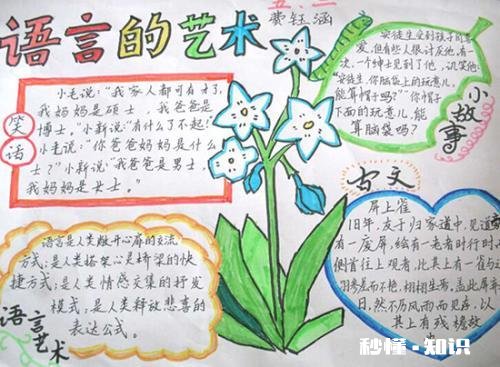 语言的艺术
五.二
费钰涵
笑话
小毛说:“我家人都可有才了,
我妈妈是硕士,我爸爸是
博士,”小新说:“有什么了不起!”
小毛说:“你爸爸妈妈是什么
士?”小新说:“我爸爸是男士,
我妈妈是女士。”
小故事
安徒生受到孩子的喜
爱,但有些人很讨厌他,有一
次,一个绅士见到了他,讥笑他:
“安徒生,你脑袋上的玩意儿,
能算帽子吗?”“你帽子
下面的玩意儿,能
算脑袋吗?
语言艺术
语言是人类敞开心扉的交流
方式;是人类搭架心灵桥梁的快
捷方式;是人类情感交集的抒发
模式,是人类释放悲喜的
表达公式。
古文
屏上雀
旧年,友子归家道中,见道
有一废屏,绘有一老者时行时
侧首往上观者,比其上有一雀与之
日,然不历风雨而见存,以
其上有残檐故
秒懂·知识